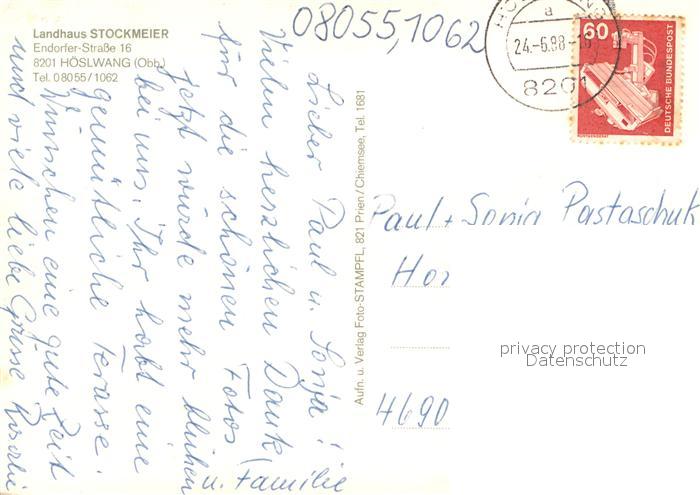 Landhaus STOCKMEIER
Endorfer-Straße 16
8201 HÖSLWANG (Obb.)
Tel. 08055/1062
08055,1062
Lieber Paul u. Sonja!
Vielen herzlichen Dank
für die schönen Fotos
jetzt würde mehr blühen
bei uns. Ihr habt eine
gemütliche Terasse.
Wünschen eine gute Zeit
und viele liebe Grüsse
u. Familie
Aufn. u. Verlag Foto-STAMPFL, 821 Prien/Chiemsee, Tel. 1681
a
24.-6.88-16
8201
60
DEUTSCHE BUNDESPOST
Paul + Sonja Pastaschuk
Hor
4690
privacy protection
Datenschutz